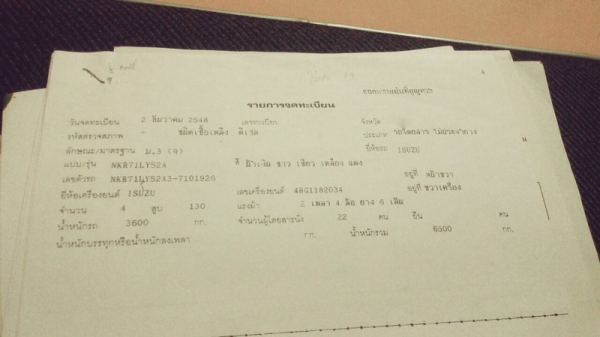 รายการจดทะเบียน
วันจดทะเบียน 2 ธันวาคม 2548 เลขทะเบียน จังหวัด
รหัสตรวจสภาพ - ชนิดเชื้อเพลิง ดีเซล ประเภท รถโดยสาร ไม่ประจำทาง
ลักษณะ/มาตรฐาน ม.3 (จ) ยี่ห้อรถ ISUZU
แบบ/รุ่น NKR71LY52A สี ฟ้าเงิน ขาว เขียว เหลือง แดง
เลขตัวรถ NKR71LY52A3-7101926 อยู่ที่ หน้าขวา
ยี่ห้อเครื่องยนต์ ISUZU เลขเครื่องยนต์ 4HG1182034 อยู่ที่ ขวาเครื่อง
จำนวน 4 สูบ 130 แรงม้า 2 เพลา 4 ล้อ ยาง 6 เส้น
น้ำหนักรถ 3600 กก. จำนวนผู้โดยสารนั่ง 22 คน ยืน คน
น้ำหนักบรรทุกหรือน้ำหนักลงเพลา กก. น้ำหนักรวม 6500 กก.